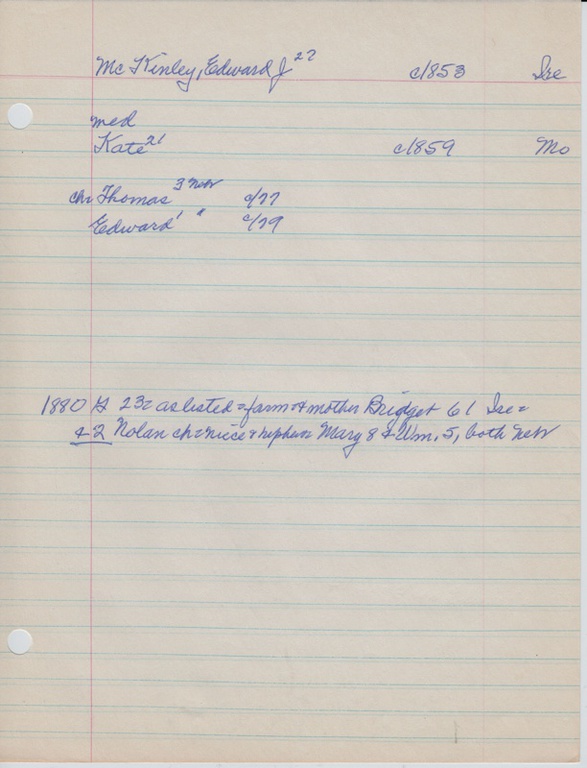 McKinley, Edward J 27 c/1853 Ire
med
Kate 21 c/1859 Mo
ch Thomas 3 Neb c/77
Edward 1 " c/79
1880 23= as listed = farm = + mother Bridget 61 Ire =
+ 2 Nolan ch = niece + nephew = Mary 8 + Wm. 5, both Neb